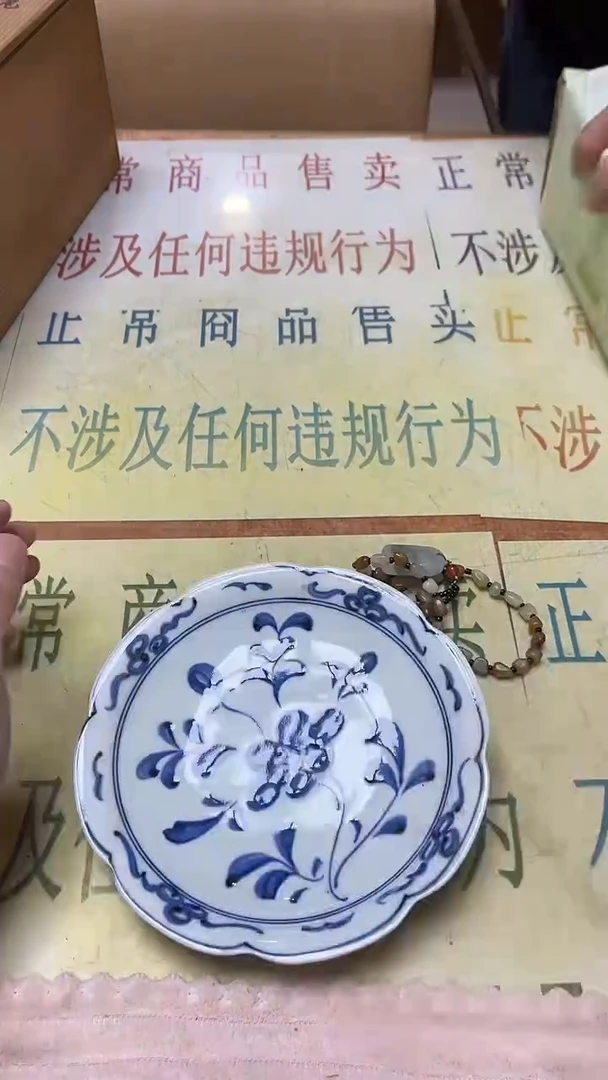 常商品售卖 正常
涉及任何违规行为 不涉及
正常商品售卖 正常
不涉及任何违规行为 不涉
常商 卖 正
及任 为 不